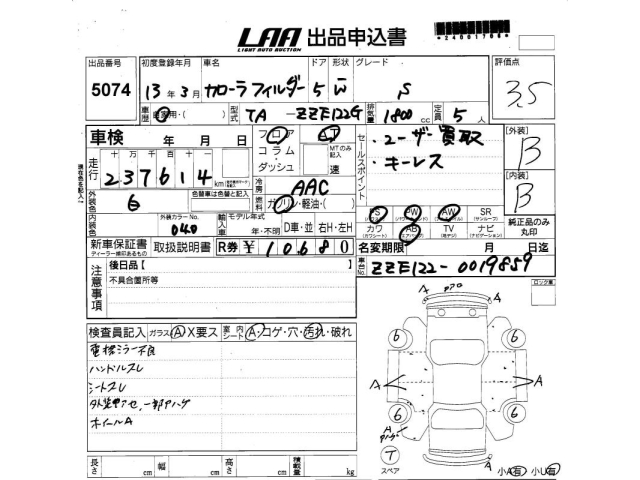 LAA 出品申込書
LIGHT AUTO AUCTION
出品番号 初度登録年月 車名 ドア 形状 グレード 評価点
5074 13年 3月 カローラフィルダー 5 W S 3.5
車歴 自家用・( ) 型式 TA - ZZE122G 排気量 1800 cc 定員 5人
車検 年 月 日 フロア AT セールスポイント ・ユーザー買取 [外装]
コラム・ MTのみ記入 ・キーレス B
走行 十万 万 千 百 十 ダッシュ 速
237614 km 冷房 AAC [内装]
外装色 色替車は色替と記入 燃料 ガソリン・軽油・( ) B
6 PS PW AW SR
(サンルーフ)
内装色 外装カラーNo. 輸入車 モデル年式 カワ AB TV ナビ 純正品のみ丸印
040 年・不明 D車・並 右H・左H (カワシート) (エアバッグ) (ナビゲーション)
新車保証書 取扱説明書 R券 ¥ 10680 名変期限 月 日迄
ディーラー捺印あるもの
車台No. ZZE122-0019859
注意事項 後日品[ ] ロック車
不具合箇所等
検査員記入 ガラス A X要ス 室内シート A・コゲ・穴・汚れ・破れ
電格ミラー不良
ハンドルスレ
シートスレ
ホイールA
長さ cm 幅 cm 高さ cm 積載量 kg
A A
6 6
A A
6 6
A
T
スペア A 小A有 小U有
現在色を記入